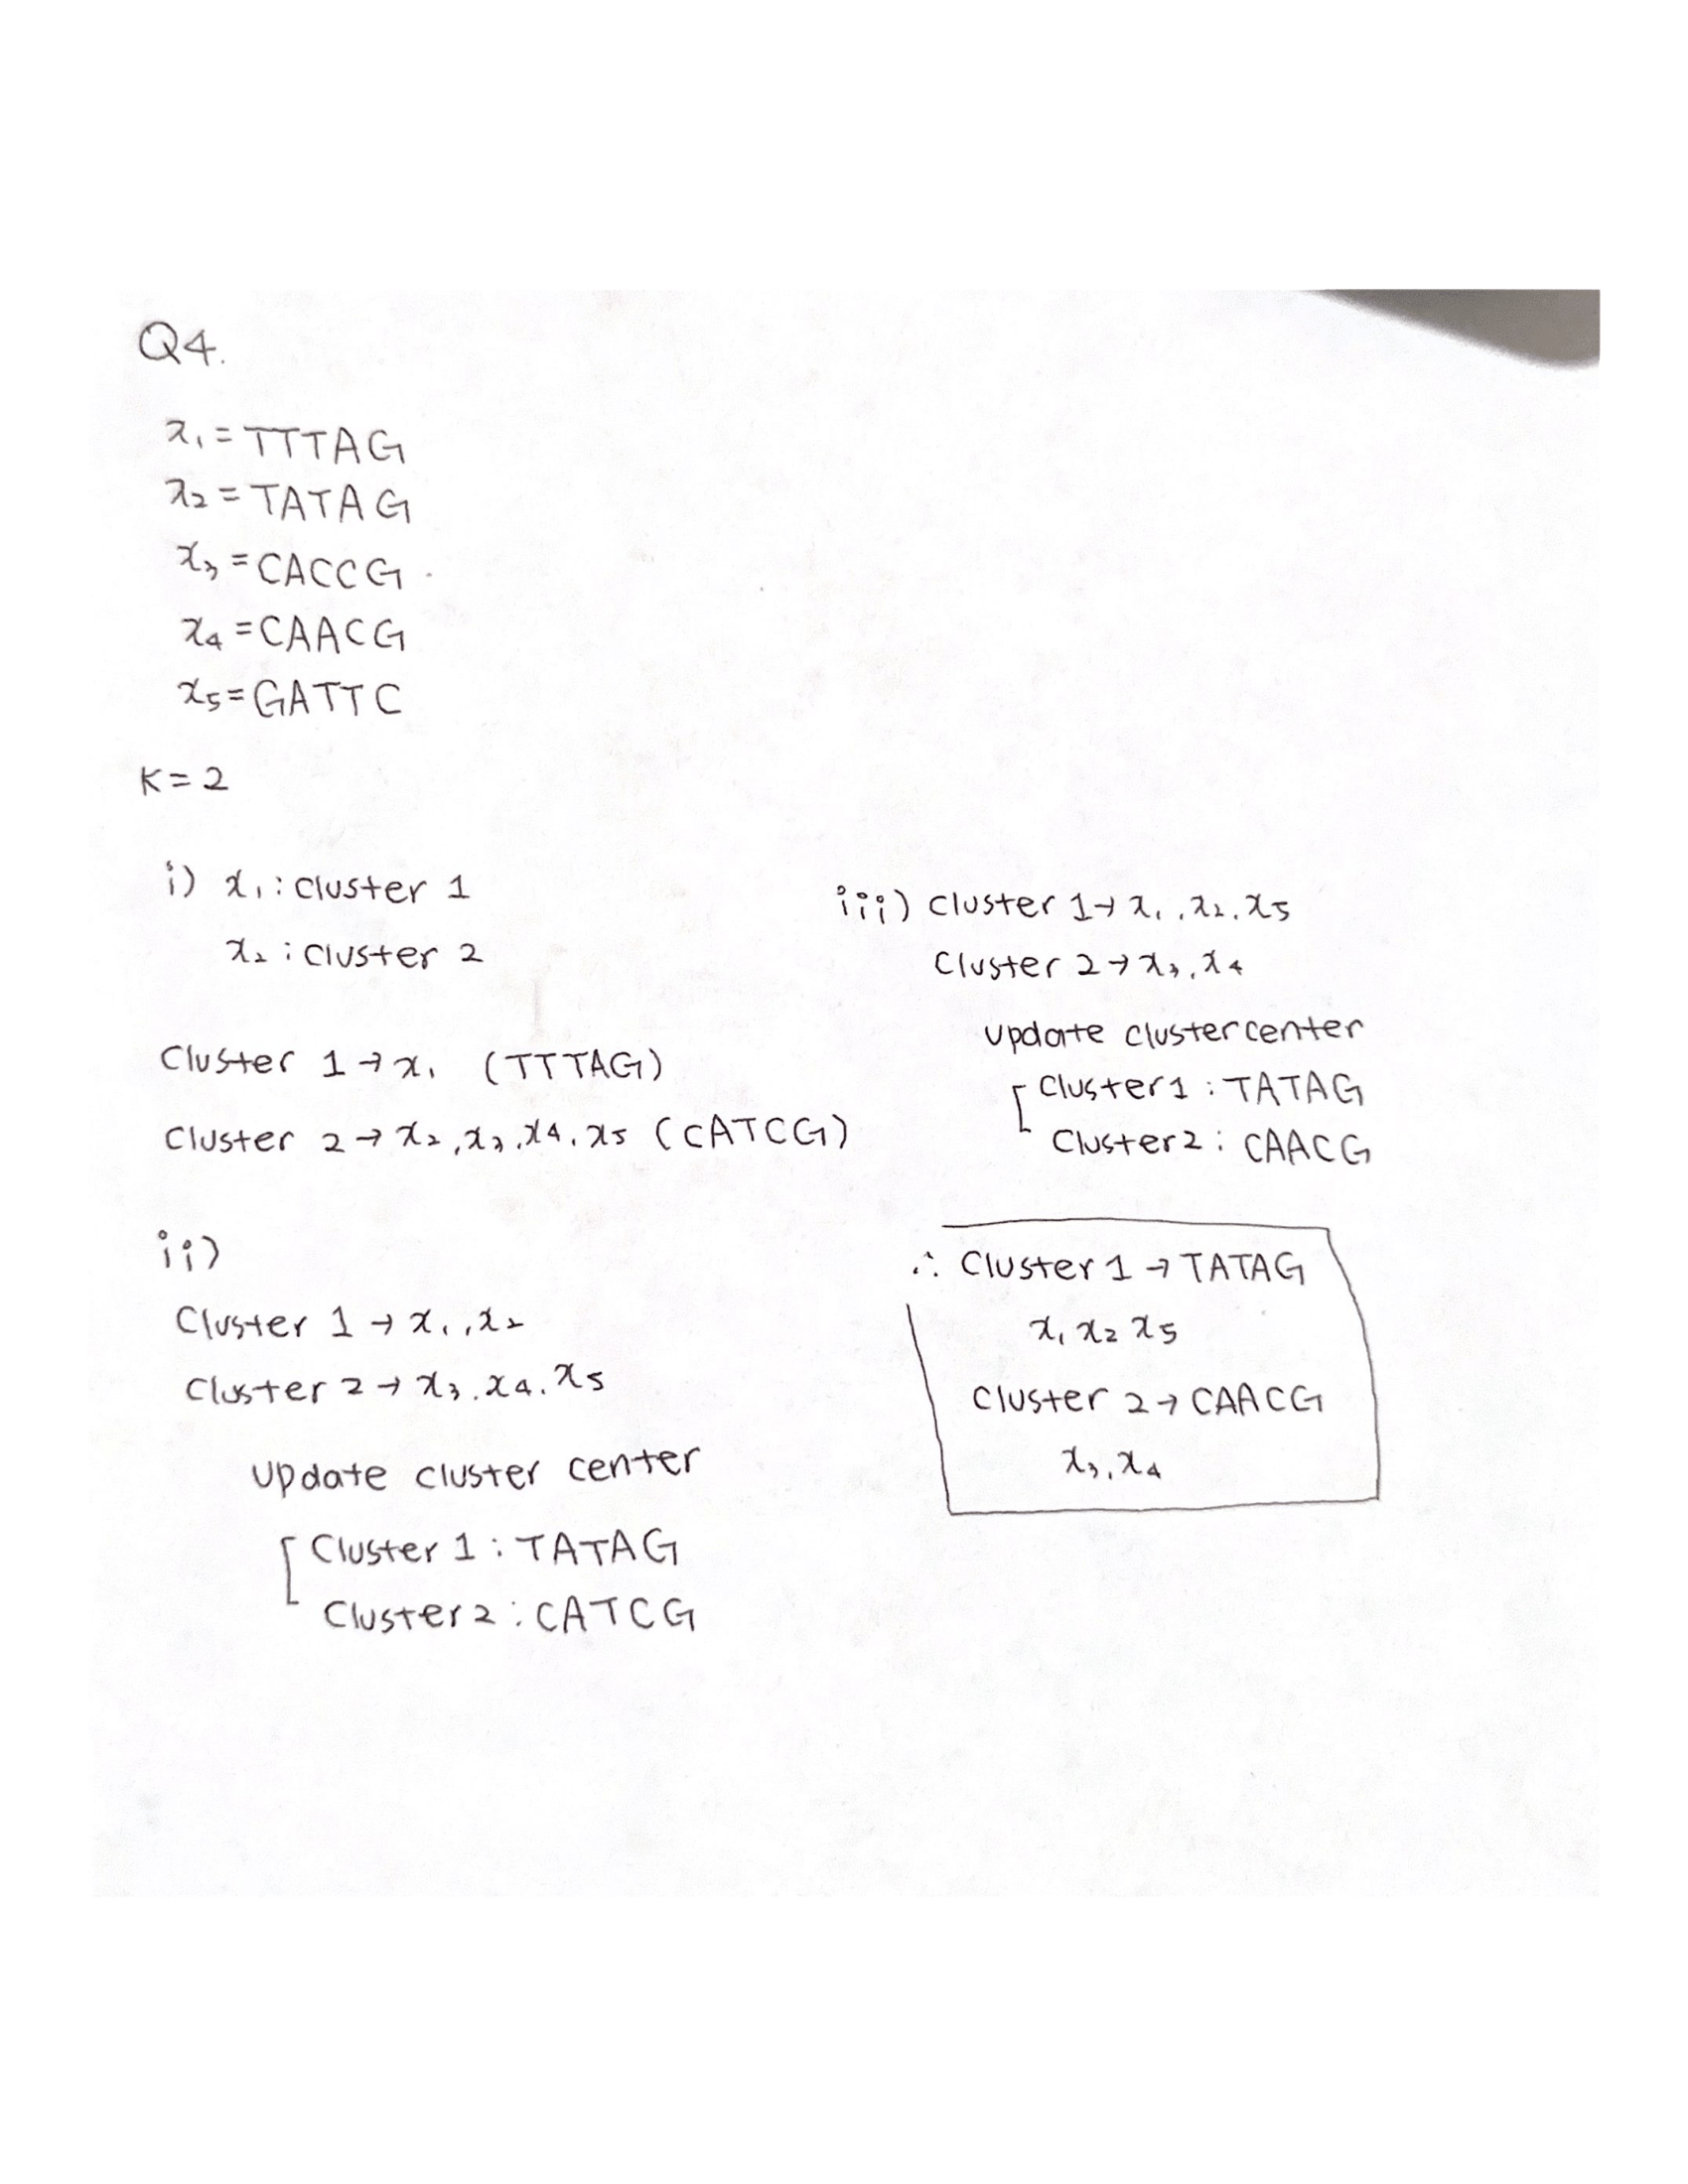 Q4.
x₁ = TTTAG
x₂ = TATAG
x₃ = CACCG
x₄ = CAACG
x₅ = GATTC
K = 2
i) x₁ : cluster 1
x₂ : cluster 2
Cluster 1 → x₁ (TTTAG)
Cluster 2 → x₂, x₃, x₄, x₅ (CATCG)
ii)
Cluster 1 → x₁, x₂
Cluster 2 → x₃, x₄, x₅
update cluster center
Cluster 1 : TATAG
Cluster 2 : CATCG
iii) Cluster 1 → x₁, x₂, x₅
Cluster 2 → x₃, x₄
update cluster center
Cluster 1 : TATAG
Cluster 2 : CAACG
∴ Cluster 1 → TATAG
x₁ x₂ x₅
Cluster 2 → CAACG
x₃, x₄